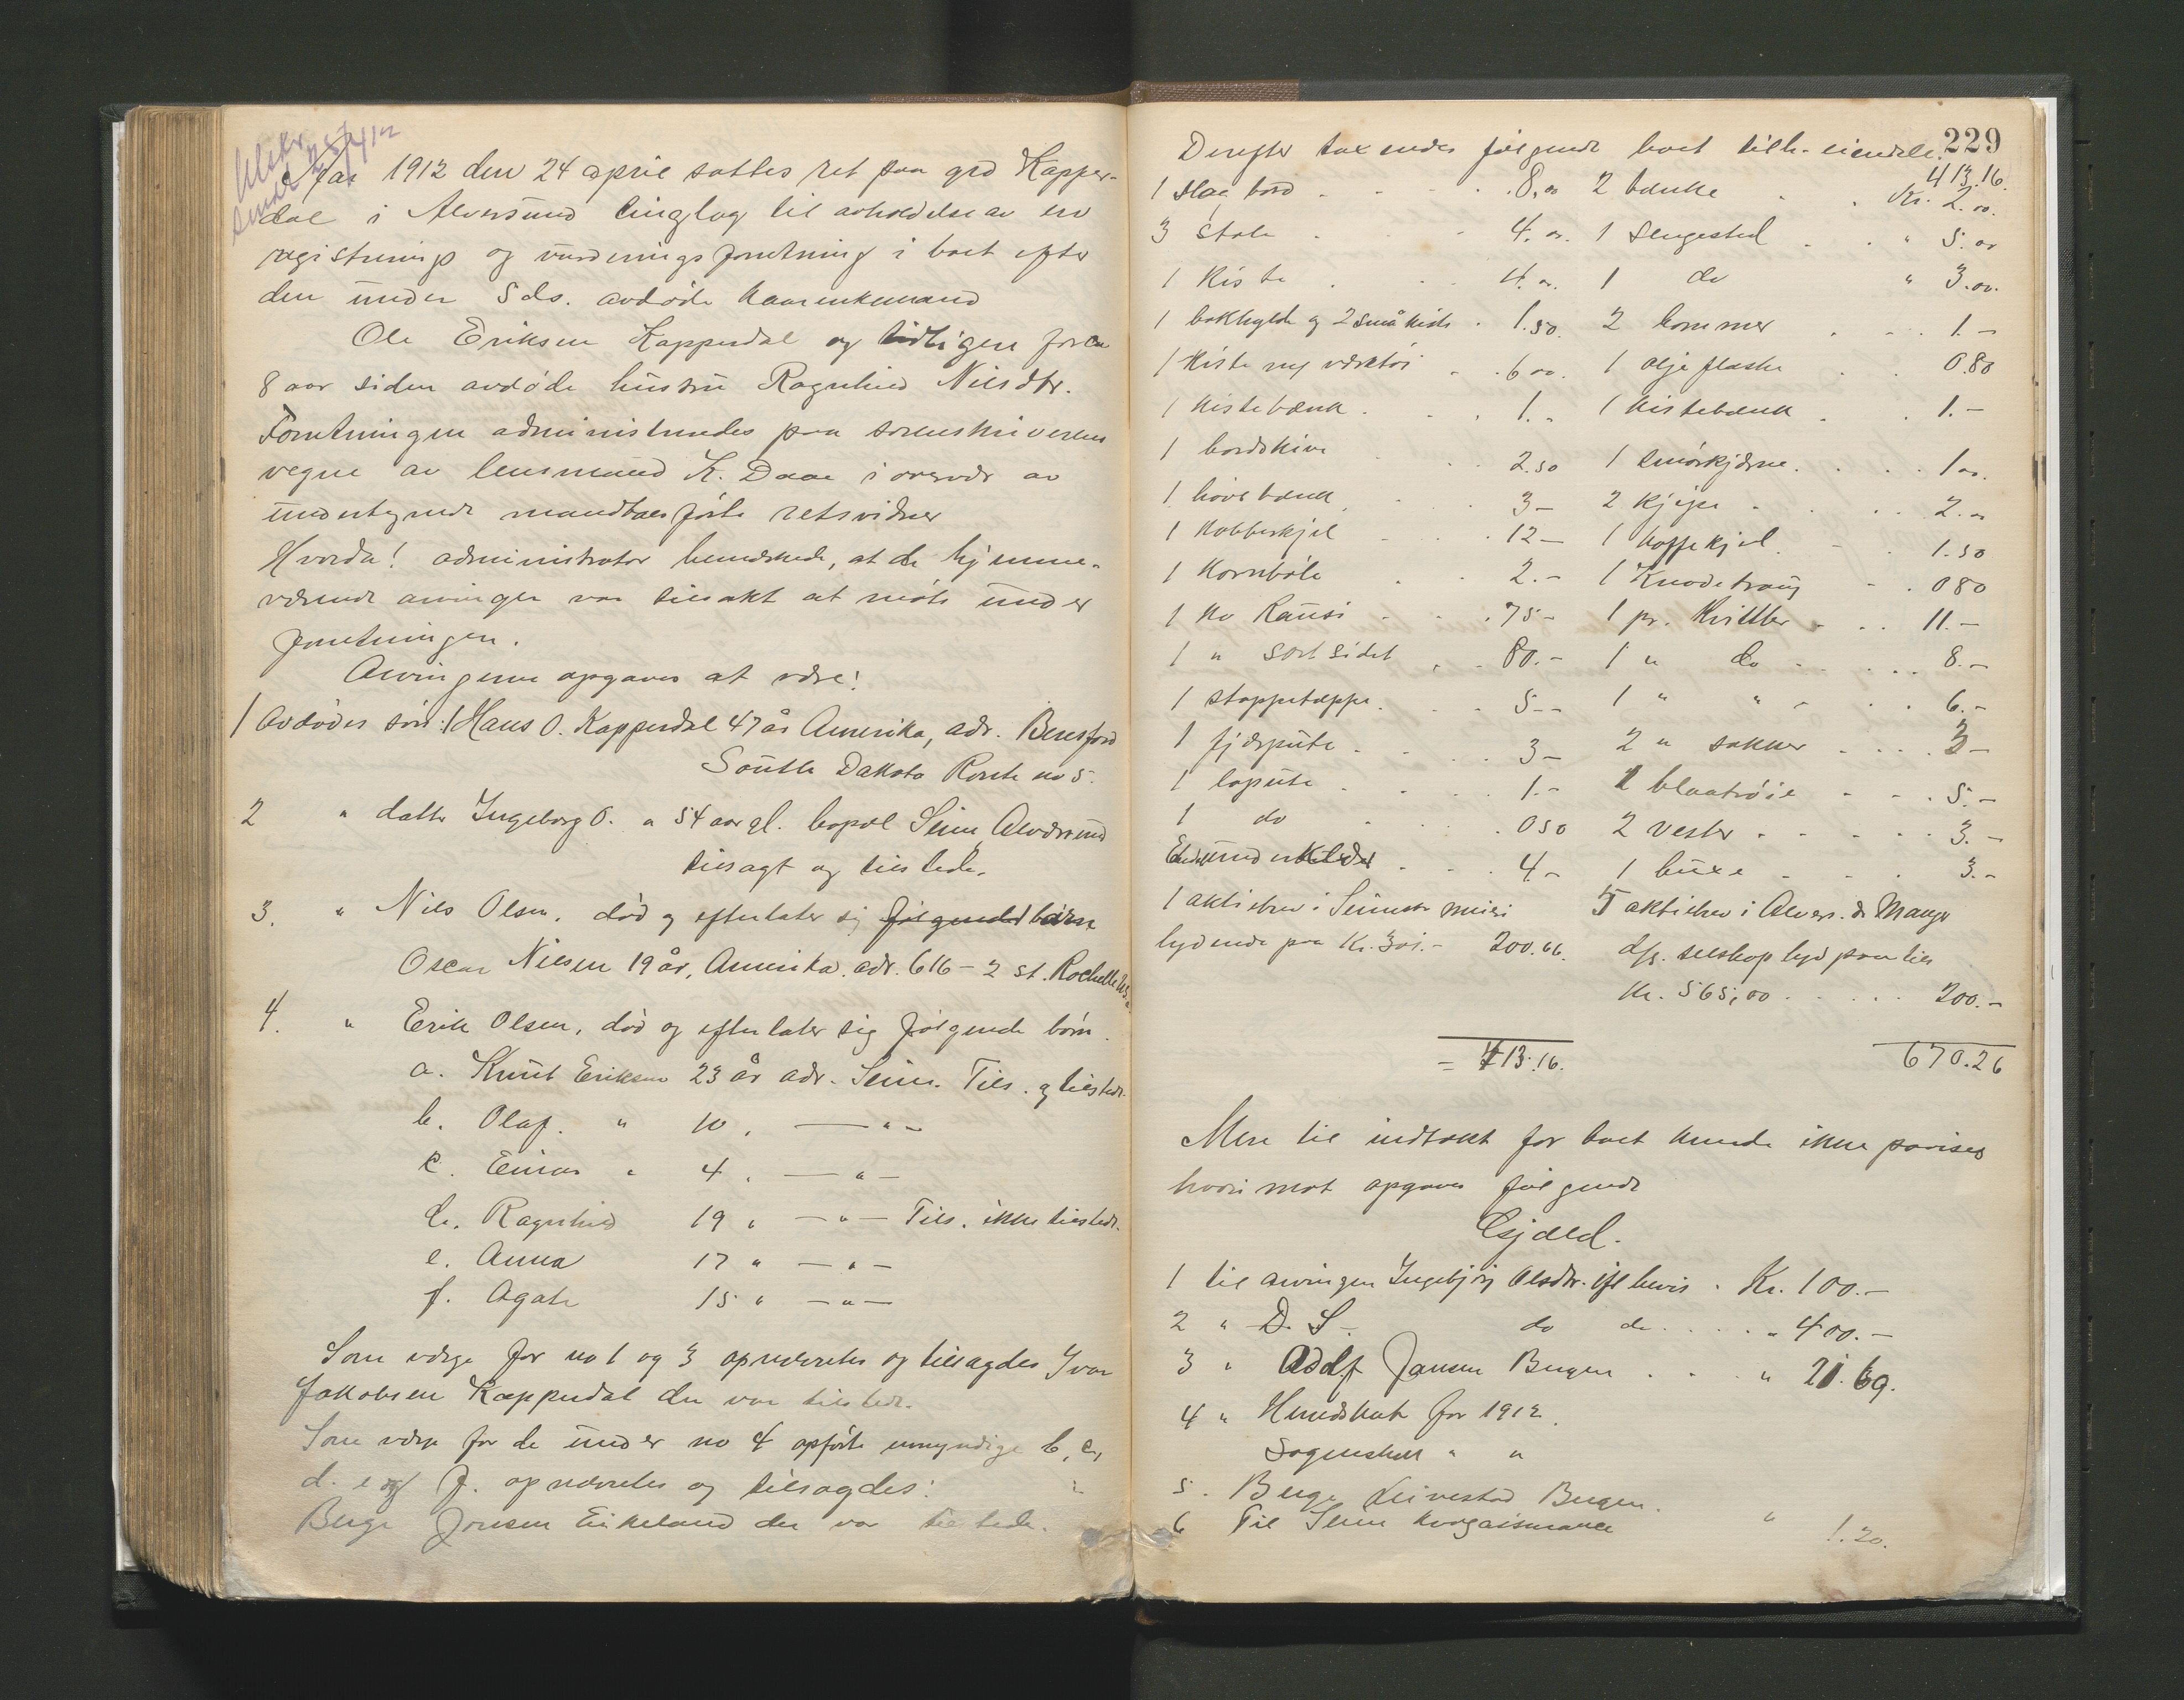 Utskr.
sendt 25/4 12
Aar 1912 den 24 april sattes ret paa grd Kapper-
dal i Alversund tinglag til avholdelse av en
registrerings og vurderings forretning i boet efter
den under 5 ds. avdöde kaarenkemand
Ole Eriksen Kapperdal og tidligere for ca
8 aar siden avdöde hustru Ragnhild Nilsdtr.
Forretningen administreredes paa sorenskriverens
vegne av lensmand K. Daae i overvær av
undertegnede mandtalsförte retsvidner
Hvorda! administrator bemærkede, at de hjemme-
værende arvinger var tilsakt at möte under
forretningen.
Arvingerne opgaves at være:
1 Avdödes sön: 1 Hans O. Kapperdal 47 år Amerika, adr. Beresford
South Dakota Route no 5.
2 " datter Ingeborg O. " 54 aar gl. bopæl Seim, Alversund
tilsagt og tilstede.
3. " Nils Olsen. död og efterlater sig følgende børn
Oscar Nilsen 19 år, Amerika. adr. 616 - 2 st. Rochelle
4. " Erik Olsen, död og efterlater sig följende börn.
a. Knut Eriksen 23 år adr. Seim. Tils. og tilstede.
b. Olaf. " 10. — " —
c. Einar " 4. — " —
d. Ragnhild 19 " — " — Tils. ikke tilstede.
e. Anna 17 " — " —
f. Agate 15 " — " —
Som værge for no 1 og 3 opnævntes og tilsagdes Ivar
Jakobsen Kapperdal der var tilstede.
Som værge for de under no 4 opförte umyndige b, c,
d. e og f. opnævntes og tilsagdes:
Berge Jonsen Eikeland der var tilstede.
229
Derefter taxerdes følgende boet tilh. eiendele.
413.16
1 slag bord . . 8,00 2 bænke . . Kr. 2.00.
3 stole . . 4.00. 1 sengested . . " 5.00
1 Kiste . . 4.00. 1 do " 3.00.
1 bokhylde og 2 små kister . 1.50. 2 kommer . . 1.-
1 Kiste m/ værktöi . . 6.00. 1 olje flaske . . 0.80
1 Kistebænk . . 1.- 1 Kistebænk . . 1.-
1 bordskive . . 2.50 1 smörkjærne . . 1.00.
1 hövebænk . . 3- 2 Kjiper . . 2.00
1 Kobberkjel . . 12- 1 Kaffekjel . . 1.50
1 Kornböle . . 2.- 1 Knodetraug . . 080
1 Ko Rausi . . 75- 1 pr. Kvitler . . 11.-
1 " sortsidet . . 80.- 1 " do . . 8.-
1 stoppetæppe . . 5-- 1 " " . . 6.-
1 fjærpute . . 3- 2 " sokker . . 3-
1 lopute . . 1.- 1 blaatröie . . 5.-
1 do . . 050 2 vester . . 3.-
Endel underklæder . . 4.- 1 buxe . . 3.-
1 aktiebrev i Seimstr meieri 5 aktiebrev i Alvers. & Manger
lydende paa Kr. 301.- 200.66. dfs. selskap lyd paa tils
Kr. 565,00 . . 200.-
= 413.16. 670.26
Mere til indtækt for boet kunde ikke paavises
hvorimot opgaves følgende
Gjæld.
1 til arvingen Ingebjörg Olsdtr. ifl bevis . Kr. 100.-
2 " D. S. do do . . " 400.-
3 " Adolf Jansen Bergen . . " 21.69.
4 " Hundskat for 1912.
Sogneskat " "
5. Berge Leivestad Bergen.
6 Til Seim " 1.20.